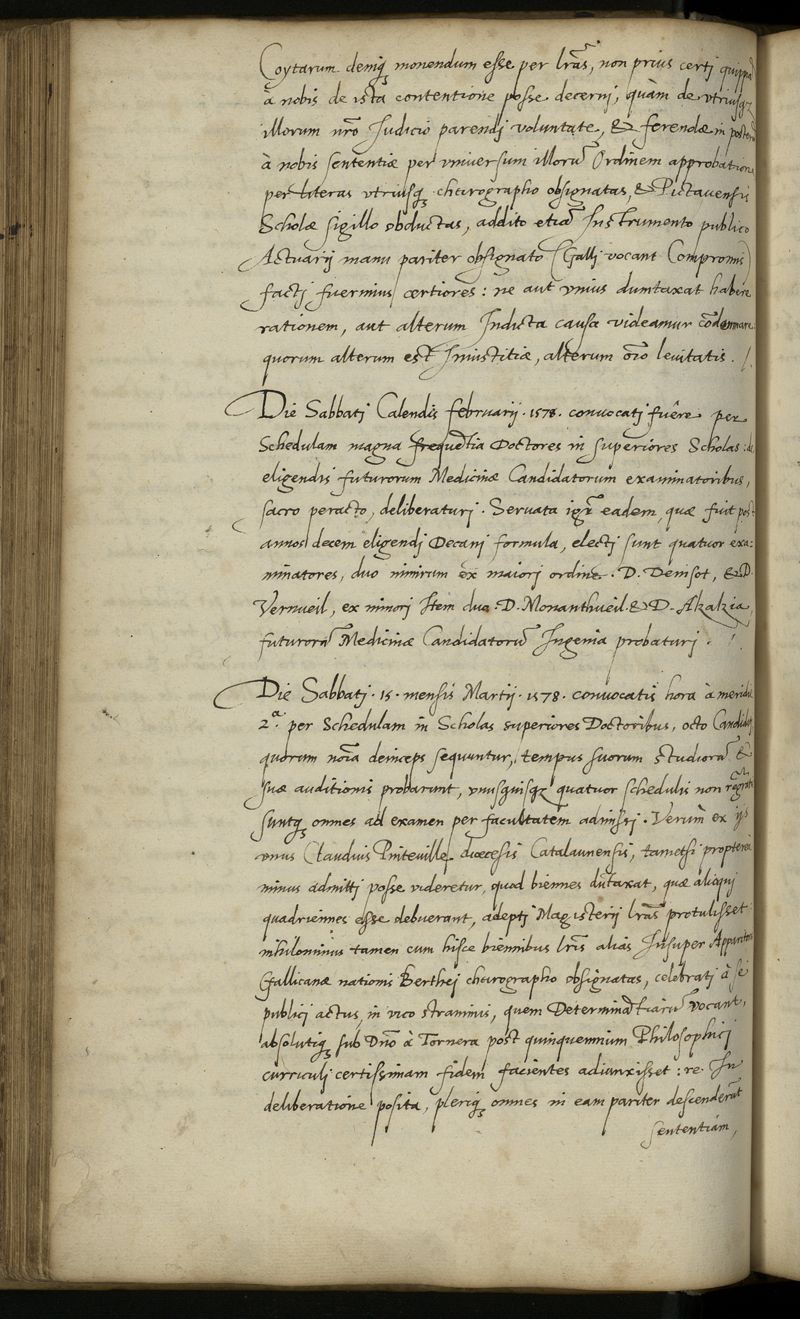 Coytarum demiq; monendum esse per lr̃as, non prius certj quippiã
à nobis de ista contentione posse decernj, quàm de vtriusq;
illorum nr̃o Judicio parendj voluntate, & ferendæ in posterũ
à nobis sententiæ per vniuersum illorũ Ordinem approbatione
per literas vtriusq; chirographo obsignatas, & Pictauensis
Scholæ sigillo obductas, addito etiã Instrumento publico
Actuarij manu pariter obsignato (Gallj vocant Compromis)
factj fuerimus certiores: ne aut vnius dumtaxat habere
rationem, aut alterum Indicta causa videamur cõdemnare
quorum alterum est Iniustitiæ, alterum oĩo leuitatis.
Die Sabbatj Calendis februarij . 1578. conuocatj fuêre per
Schedulam magna frequẽtia Doctores in superiores Scholas: de
eligendis futurorum Medicinæ Candidatorum examinatoribus,
sacro peracto, deliberaturj. Seruata igr̃ eadem, quæ fuit post
annos decem eligendj Decanj formula, electj sunt quatuor exa:
minatores, duo nimirum ex maiorj ordine. D. Demsot, & D.
Vernueil, ex minorj Item duo. D. Monanthueil. & D. Akakia,
futurorũ Medicinæ Candidatorũ Ingenia probaturj.
Die Sabbatj . 15. mensis Martij . 1578. conuocatis hora à meridie
2ª. per Schedulam in Scholas superiores Doctoribus, octo Candidatj
quorum noĩa deinceps sequuntur, tempus suorum studiorũ &
suæ auditionis probarunt, vnusquisq; quatuor schedulis non
suntq; omnes ad examen per facultatem admissj. Verùm ex ijs
vnus Claudius Priteuille diœcesis Catalaunensis, tametsi proptereà
minus admittj posse videretur, quod biennes dũtaxat, quæ alioquj
quadriennes esse debuerant, adeptj Magisterij lr̃as protulisset
nihilominus tamen cum hisce biennibus lr̃is alias Insuper Apparitoris
Gallicanæ nationis Berthej chirographo obsignatas, celebratj à se
publicj actus, in vico straminis, quem Determinãtiarũ vocant,
absolutiq; sub Dño à Tornera post quinquennium Philosophicj
curriculj certissimam fidem facientes adiunxisset: re. In
deliberatione posita, pleriq; omnes in eam pariter descenderũt
sententiam,